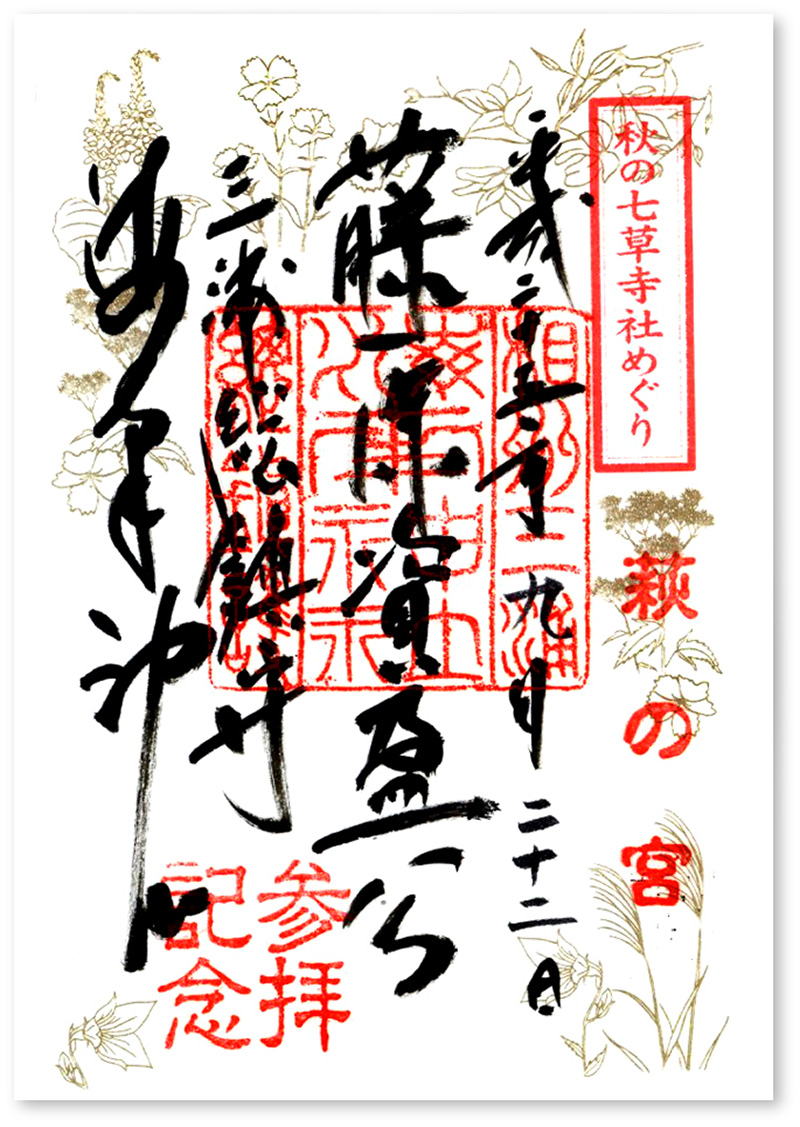 秋の七草寺社めぐり
萩の宮
平成二十五年九月二十二日
藤原資盈公
三浦総鎮守
海南神社
参拝
記念